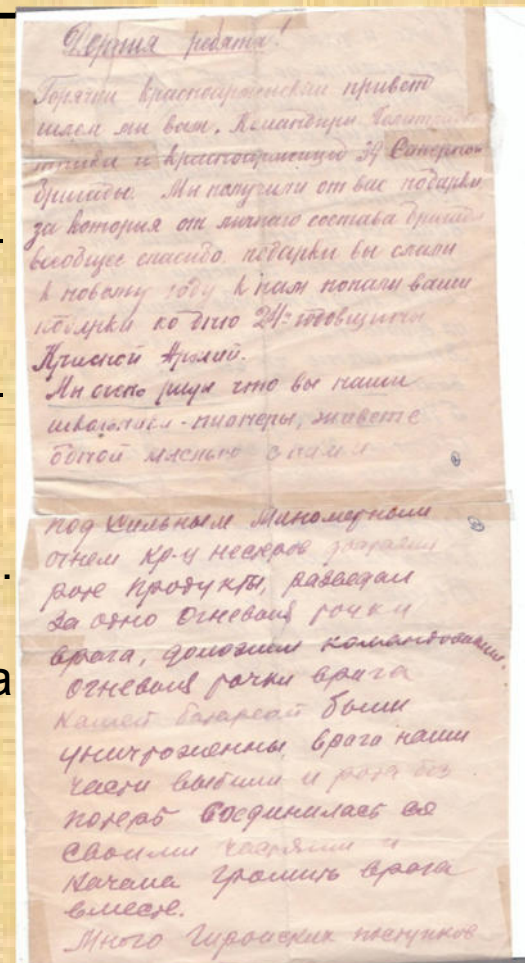 Дорогия ребята!
Горячий красноармейский привет
шлем мы вам. Командиры
и красноармейцы 39 Саперной
бригады. Мы получили от вас подарки
за которыя от личнаго состава бригады
всеобщее спасибо. подарки вы слали
к новому году к нам попали ваши
подарки ко дню 24-й годовщины
Красной Армий.
Мы очень рады что вы наши
школьники-пионеры, живете
одной мыслью с нами
под сильным Минометным
огнем кр-ц нестеров доставлял
роте продукты, разведал
за одно огневыя точки
врага, доложил командованию.
огневыя точки врага
нашей батареей были
уничтоженны, врага наши
части выбили и рота без
потерь соединилась со
своими частями и
начала громить врага
вместе.
Много Гиройских поступков
.
.
.
а